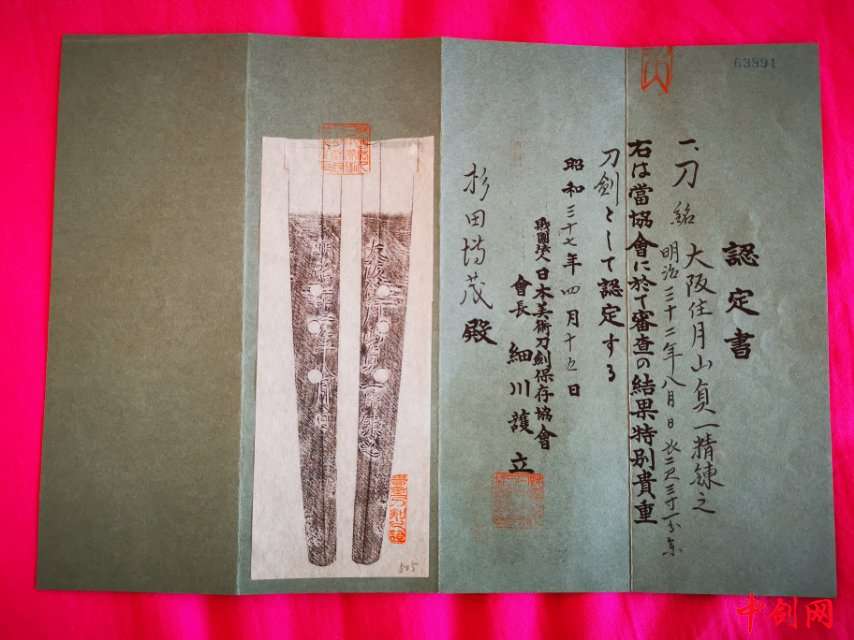 63894
認定書
一、刀 銘 大阪住月山貞一精錬之
明治三十二年八月日 長二尺三寸一分
右は當協會に於て審査の結果特別貴重
刀劍として認定する
昭和三十七年四月十五日
財團法人日本美術刀劍保存協會
會長 細川護立
杉田 茂殿
505
中创网